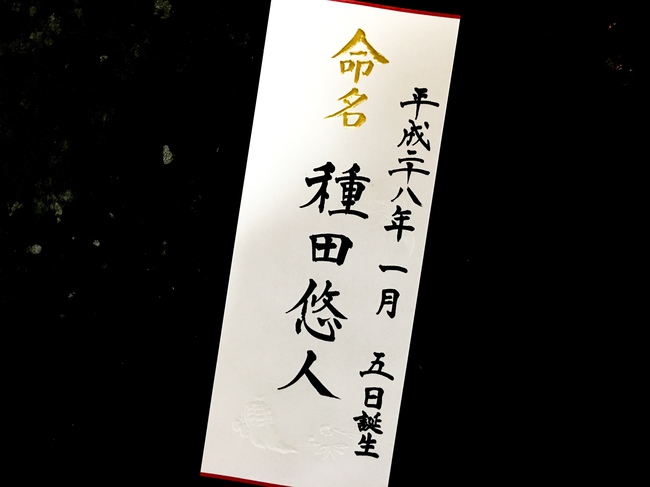 平成二十八年 一月 五日誕生
命名 種田悠人